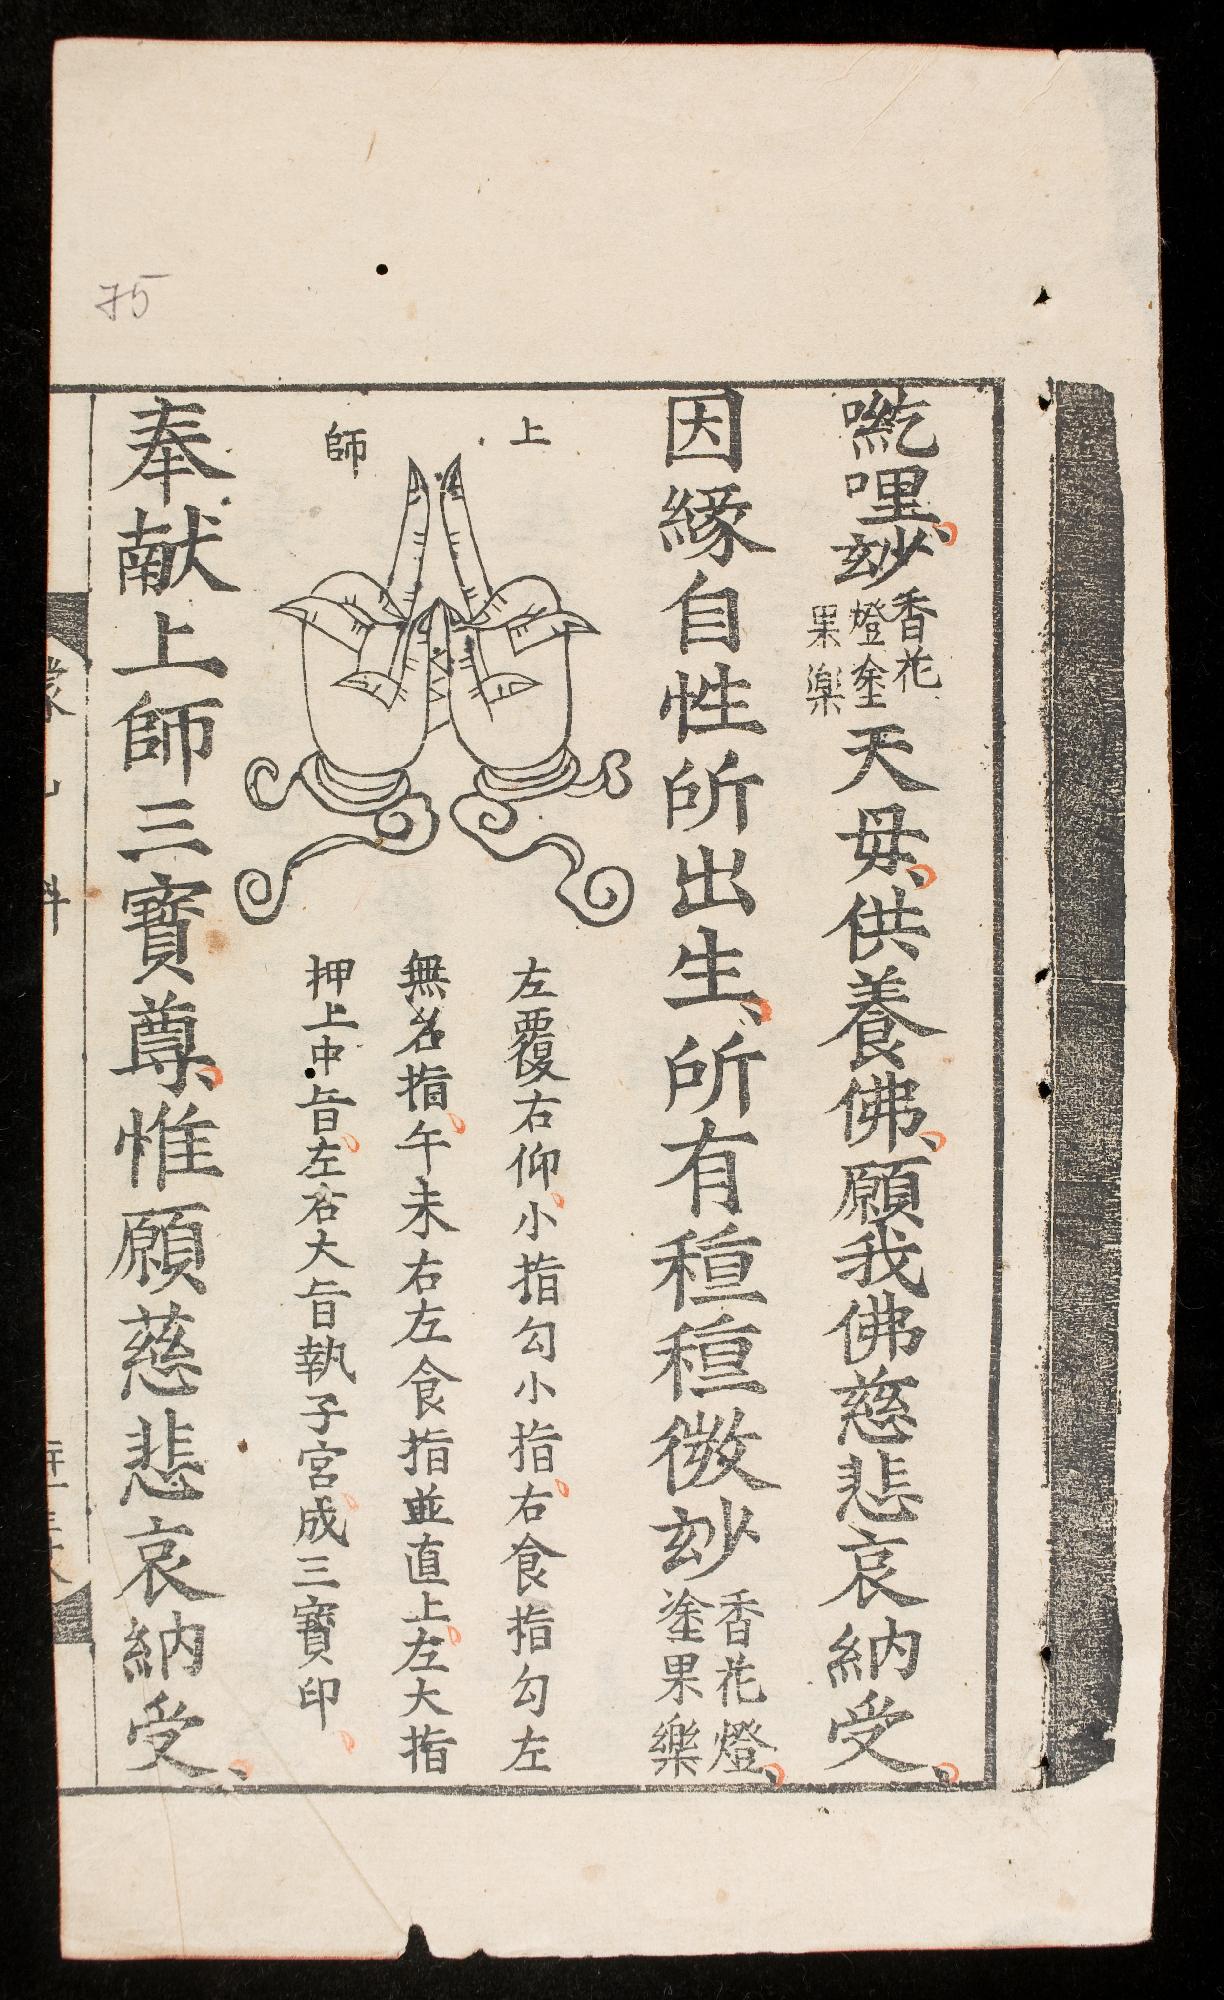 㗭哩玅香花燈塗果樂天母供養佛願我佛慈悲哀納受
因縁自性所出生所有種種微玅香花燈塗果樂
上
師
左覆右仰小指勾小指右食指勾左
無名指午未右左食指並直上左大指
押上中旨左右大旨執子宮成三寶印
奉献上師三寶尊惟願慈悲哀納受
75